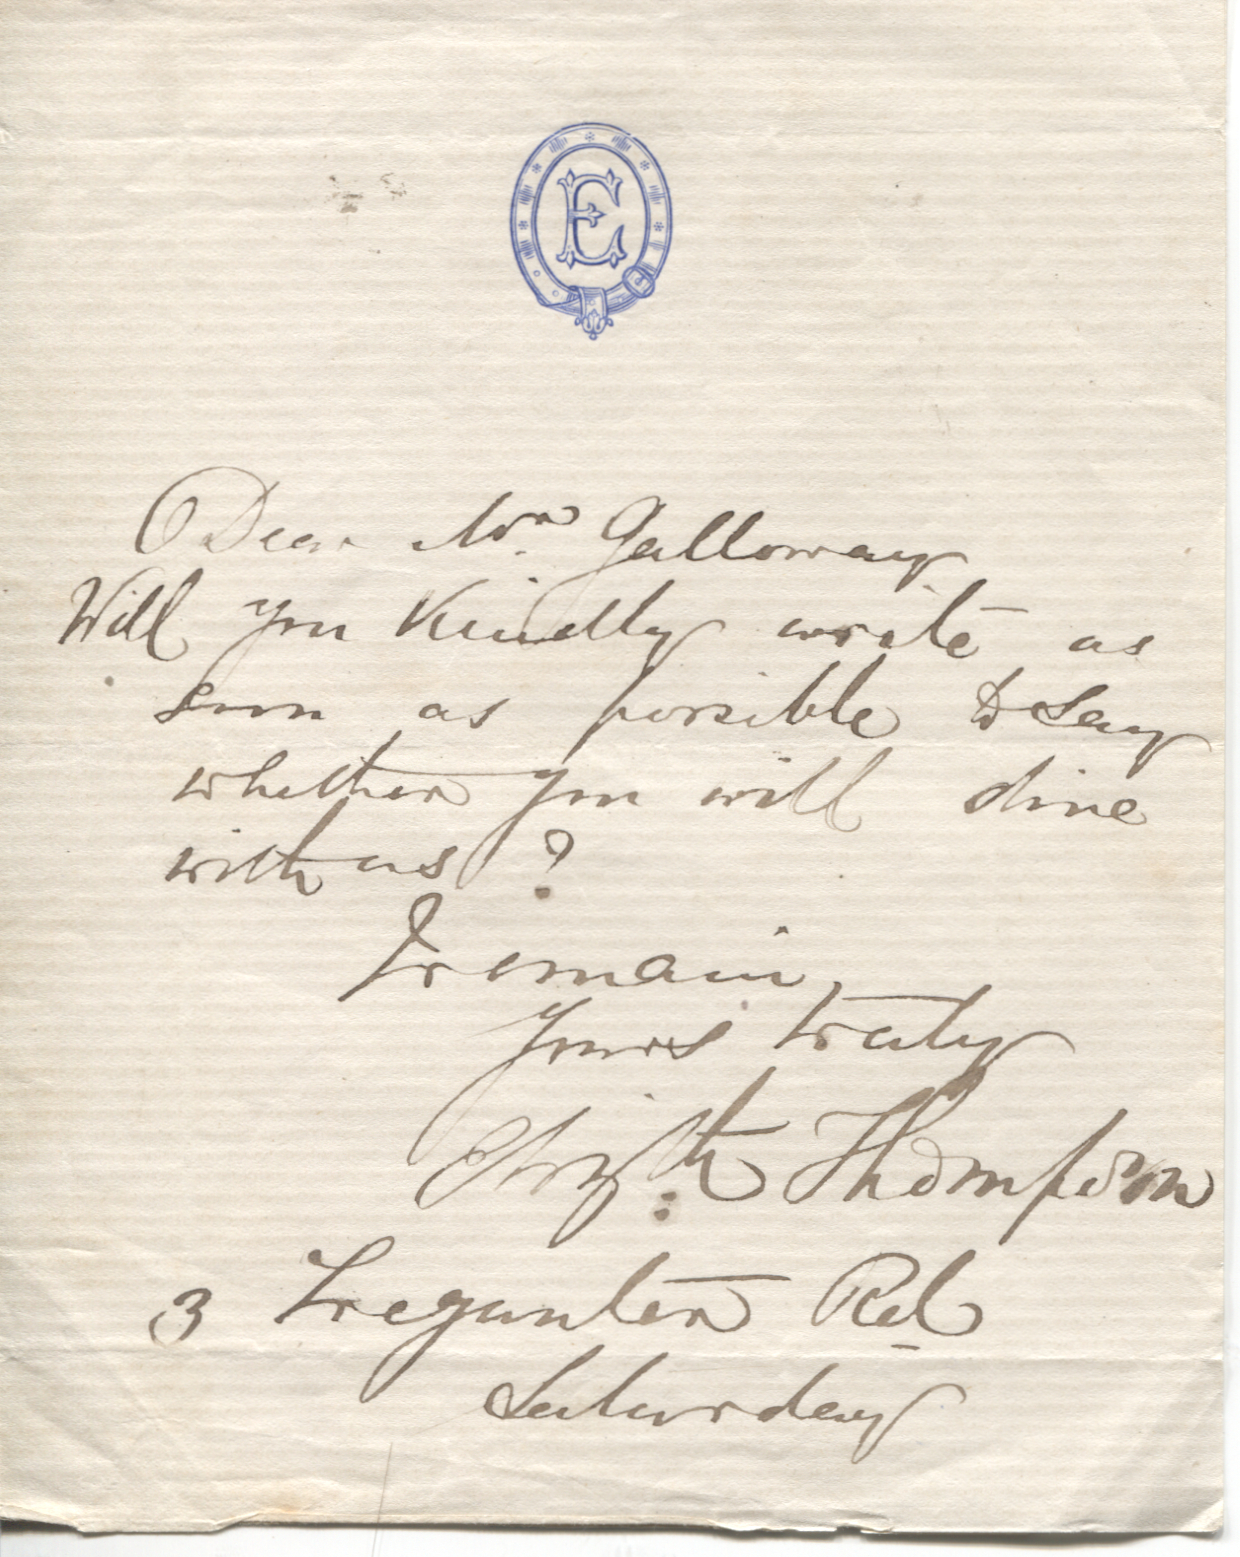 E
Dear Mr. Galloway
Will you Kindly write as
soon as possible to say
whether you will dine
with us?
I remain,
Yours truly
Elizth Thompson
3 Tregunter Rd
Saturday